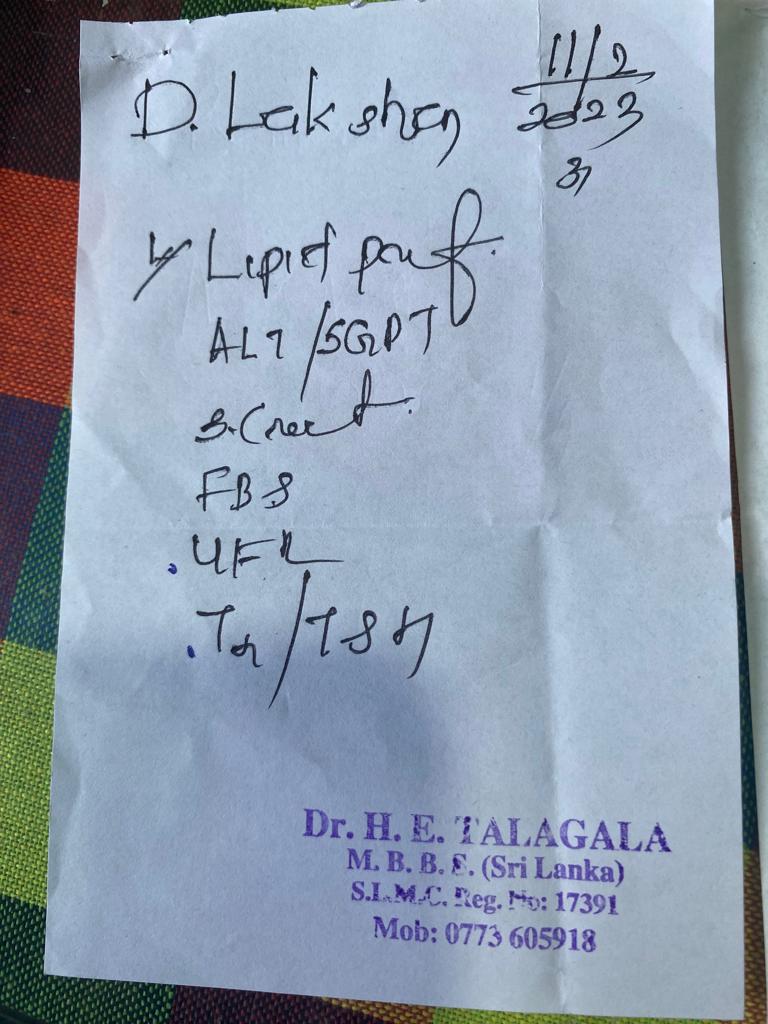 D. Lakshan 11/2
2023
Lipid prof.
ALT/SGPT
S. Creat.
FBS
UFR
T4/TSH
Dr. H. E. TALAGALA
M. B. B. S. (Sri Lanka)
S.L.M.C. Reg. No: 17391
Mob: 0773 605918